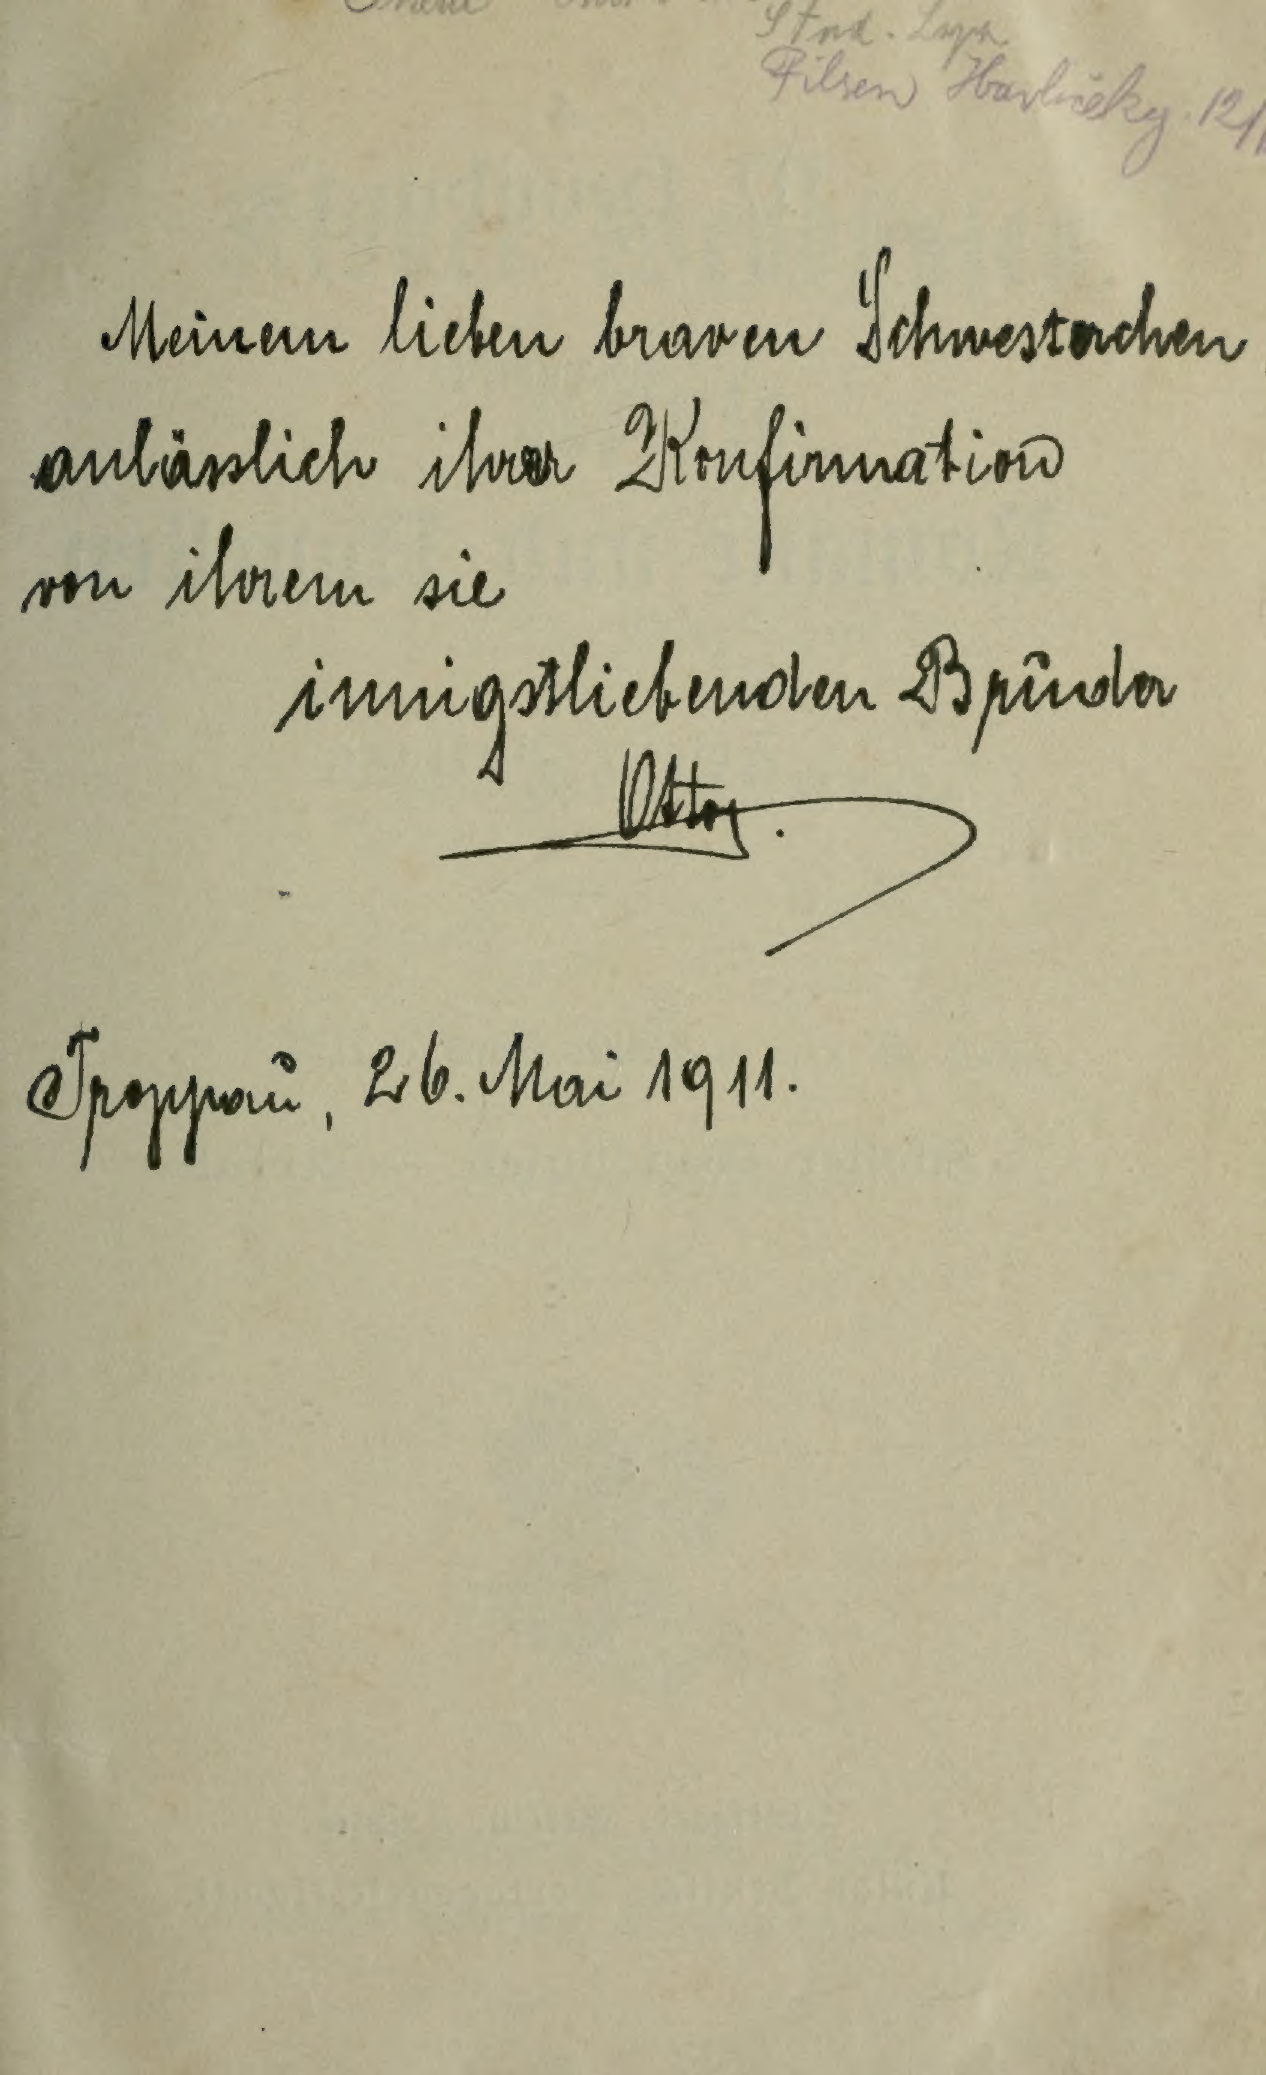 Pilsen Havličekg. 12/
Meinem lieben braven Schwesterchen
anlässlich ihrer Konfirmation
von ihrem sie
innigstliebenden Bruder
Otto.
Troppau, 26. Mai 1911.